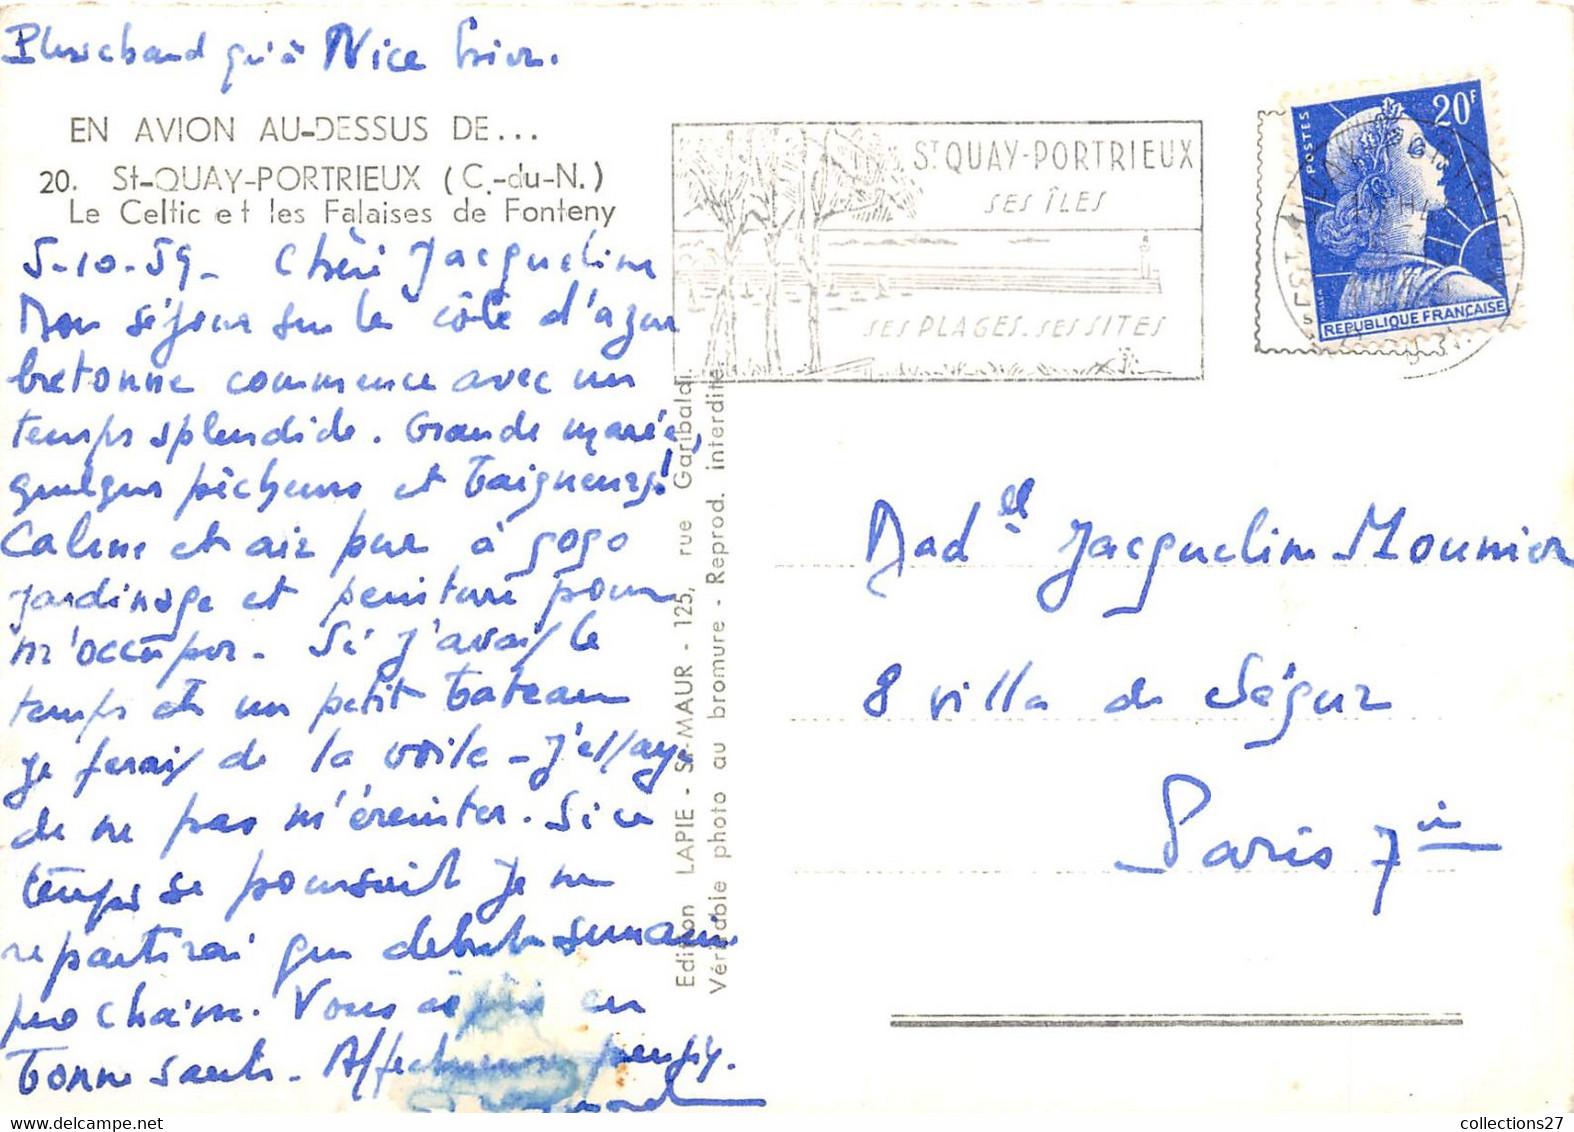 Plus chaud qu'à Nice hier.
EN AVION AU-DESSUS DE...
20. St-QUAY-PORTRIEUX (C.-du-N.)
Le Celtic et les Falaises de Fonteny
5-10-59- Chère Jacqueline
Mon séjour sur la côte d'azur
bretonne commence avec un
temps splendide. Grande marée,
quelques pêcheurs et baigneurs!
Calme et air pur à gogo
jardinage et peinture pour
m'occuper. Si j'avais le
temps et un petit bateau
je ferais de la voile - J'essaye
de ne pas m'éreinter. Si ce
temps se poursuit je ne
repartirai que début semaine
prochaine. Vous en
bonne santé. Affectueuses pensées.
Edition LAPIE - St-MAUR - 125, rue Garibaldi
Véritable photo au bromure - Reprod. interdite
St QUAY-PORTRIEUX
SES ÎLES
SES PLAGES. SES SITES
POSTES
20F
REPUBLIQUE FRANÇAISE
Mad elle Jacqueline Mounier
8 villa de Ségur
Paris 7e
collections27